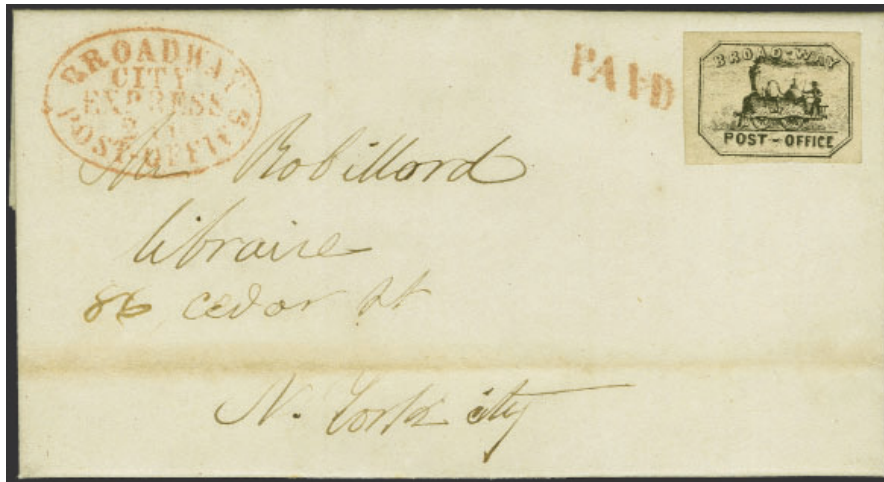 BROADWAY
CITY
EXPRESS
POST OFFICE
PAID
BROAD-WAY
POST-OFFICE
Mr Robillord
libraire
86 cedar st
N. York city